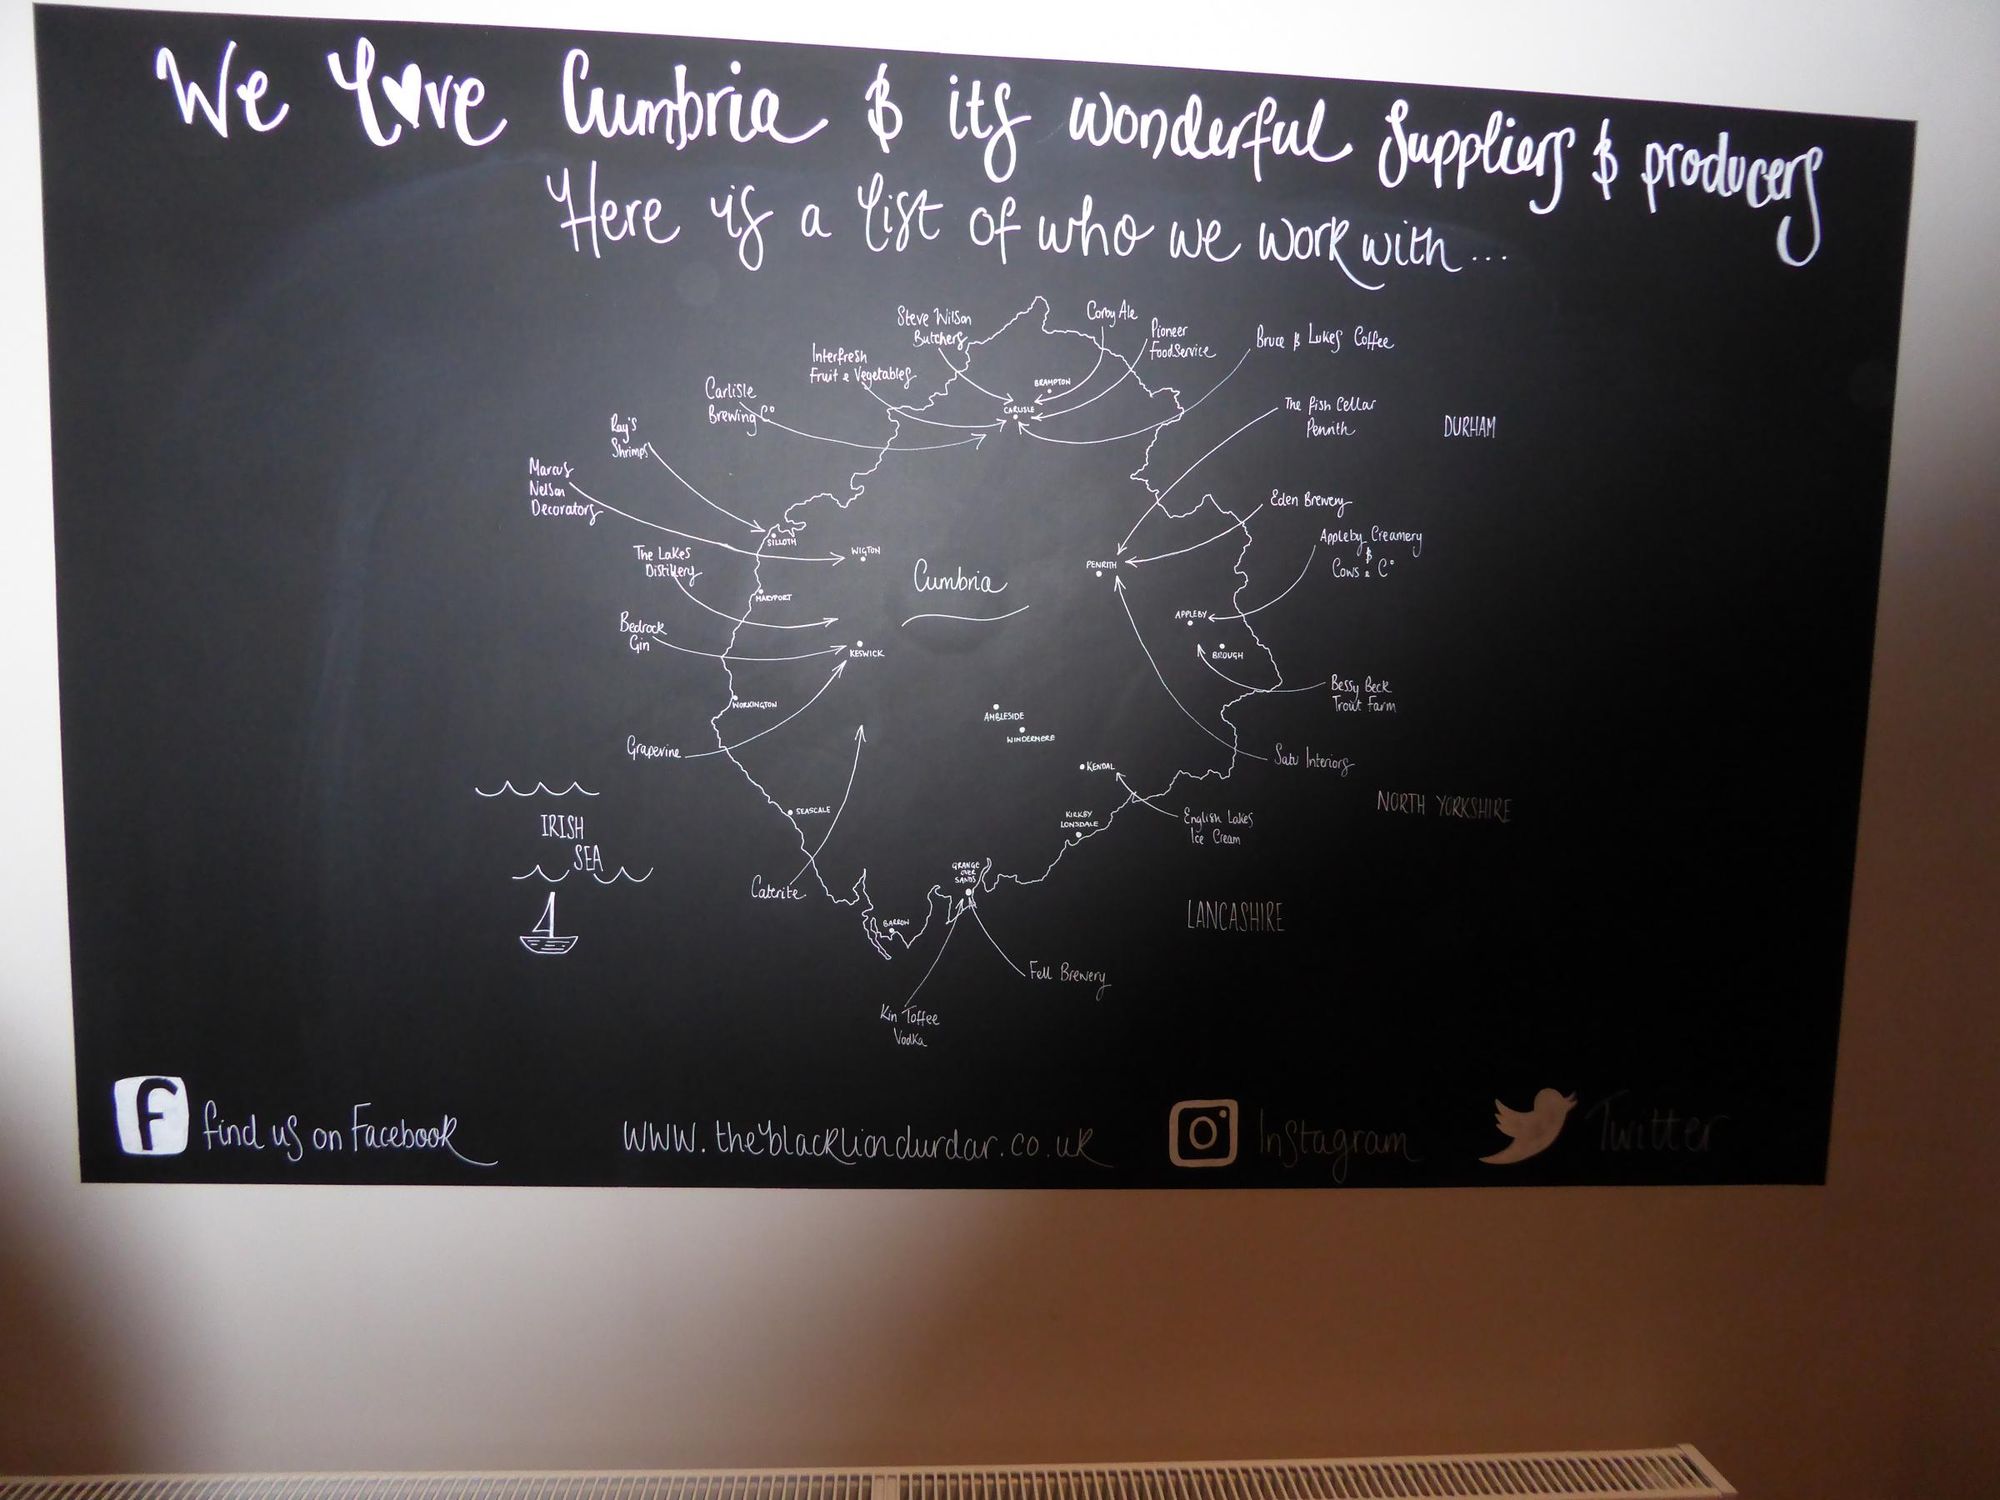 We love Cumbria & its wonderful suppliers & producers
Here is a list of who we work with...
Steve Wilson
Butchers
Corby Ale
Pioneer
FoodService
Bruce & Lukes Coffee
Interfresh
Fruit & Vegetables
Carlisle
Brewing Co
BRAMPTON
CARLISLE
The Fish Cellar
Penrith
DURHAM
Ray's
Shrimps
Marcus
Nelson
Decorators
Eden Brewery
SILLOTH
WIGTON
The Lakes
Distillery
Cumbria
PENRITH
Appleby Creamery
&
Cows & Co
MARYPORT
APPLEBY
Bedrock
Gin
KESWICK
BROUGH
Bessy Beck
Trout Farm
WORKINGTON
AMBLESIDE
WINDERMERE
Grapevine
KENDAL
Satu Interiors
NORTH YORKSHIRE
IRISH
SEA
SEASCALE
KIRKBY
LONSDALE
English Lakes
Ice Cream
Caterite
GRANGE
OVER
SANDS
BARROW
LANCASHIRE
Fell Brewery
Kin Toffee
Vodka
f find us on Facebook
www.theblackliondurdar.co.uk
Instagram
Twitter